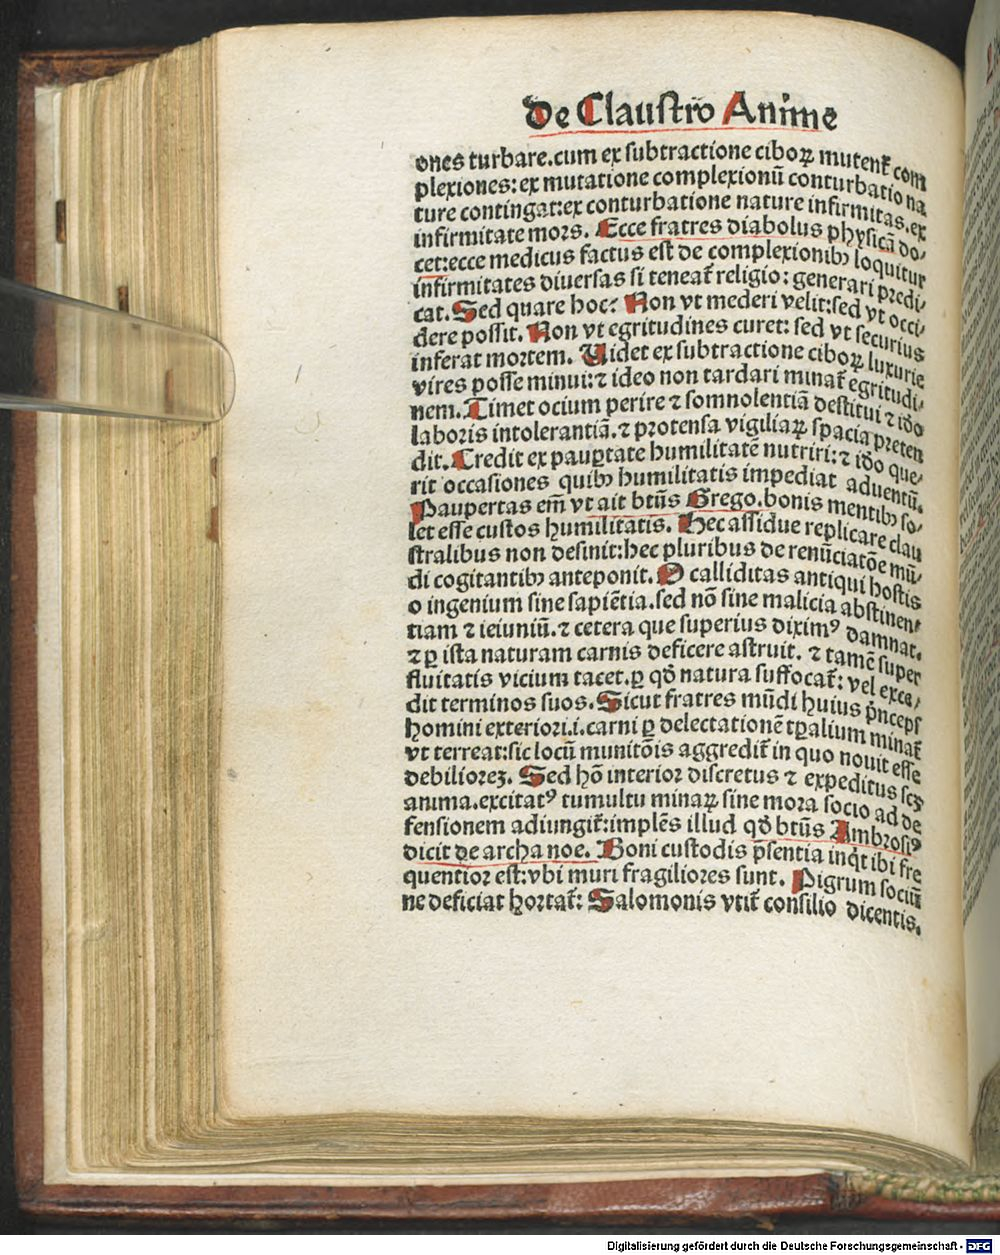 De Claustro Anime
ones turbare.cum ex subtractione ciboꝝ mutent᷑ com
plexiones: ex mutatione complexionū conturbatio na
ture contingat:ex conturbatione nature infirmitas.ex
infirmitate mors. Ecce fratres diabolus physicā do⸗
cet:ecce medicus factus est de complexionibꝫ loquitur
infirmitates diuersas si teneat᷑ religio: generari predi⸗
cat. Sed quare hoc? Non vt mederi velit:sed vt occi⸗
dere possit. Non vt egritudines curet: sed vt securius
inferat mortem. Uidet ex subtractione ciboꝝ luxurie
vires posse minui:⁊ ideo non tardari minat᷑ egritudi⸗
nem. Timet ocium perire ⁊ somnolentiā destitui ⁊ iđo
laboris intolerantiā.⁊ protensa vigiliaꝝ spacia preten
dit. Credit ex pauꝑtate humilitatē nutriri:⁊ iđo que⸗
rit occasiones quibꝫ humilitatis impediat aduentū.
Paupertas em̄ vt ait btūs Grego.bonis mentibꝫ so⸗
let esse custos humilitatis. Hec assidue replicare clau
stralibus non desinit:hec pluribus de renūciatōe mū⸗
di cogitantibꝫ anteponit. O calliditas antiqui hostis
o ingenium sine sapiētia.sed nō sine malicia abstinen⸗
tiam ⁊ ieiuniū.⁊ cetera que superius diximꝰ damnat.
⁊ ꝑ ista naturam carnis deficere astruit. ⁊ tamē super
fluitatis vicium tacet.ꝑ qđ natura suffocat᷑: vel exce⸗
dit terminos suos. Sicut fratres mūdi huius p̄nceps
homini exteriori.i.carni ꝑ delectationē tꝑalium minat᷑
vt terreat:sic locū munitōis aggredit᷑ in quo nouit esse
debiliorez. Sed hō interior discretus ⁊ expeditus scꝫ
anima.excitatꝰ tumultu minaꝝ sine mora socio ad de
fensionem adiungit᷑:implēs illud qđ btūs Ambrosiꝰ
dicit de archa noe. Boni custodis p̄sentia inq̇t ibi fre
quentior est:vbi muri fragiliores sunt. Pigrum sociū
ne deficiat hortat᷑: Salomonis vtit᷑ consilio dicentis.
Digitalisierung gefördert durch die Deutsche Forschungsgemeinschaft - DFG